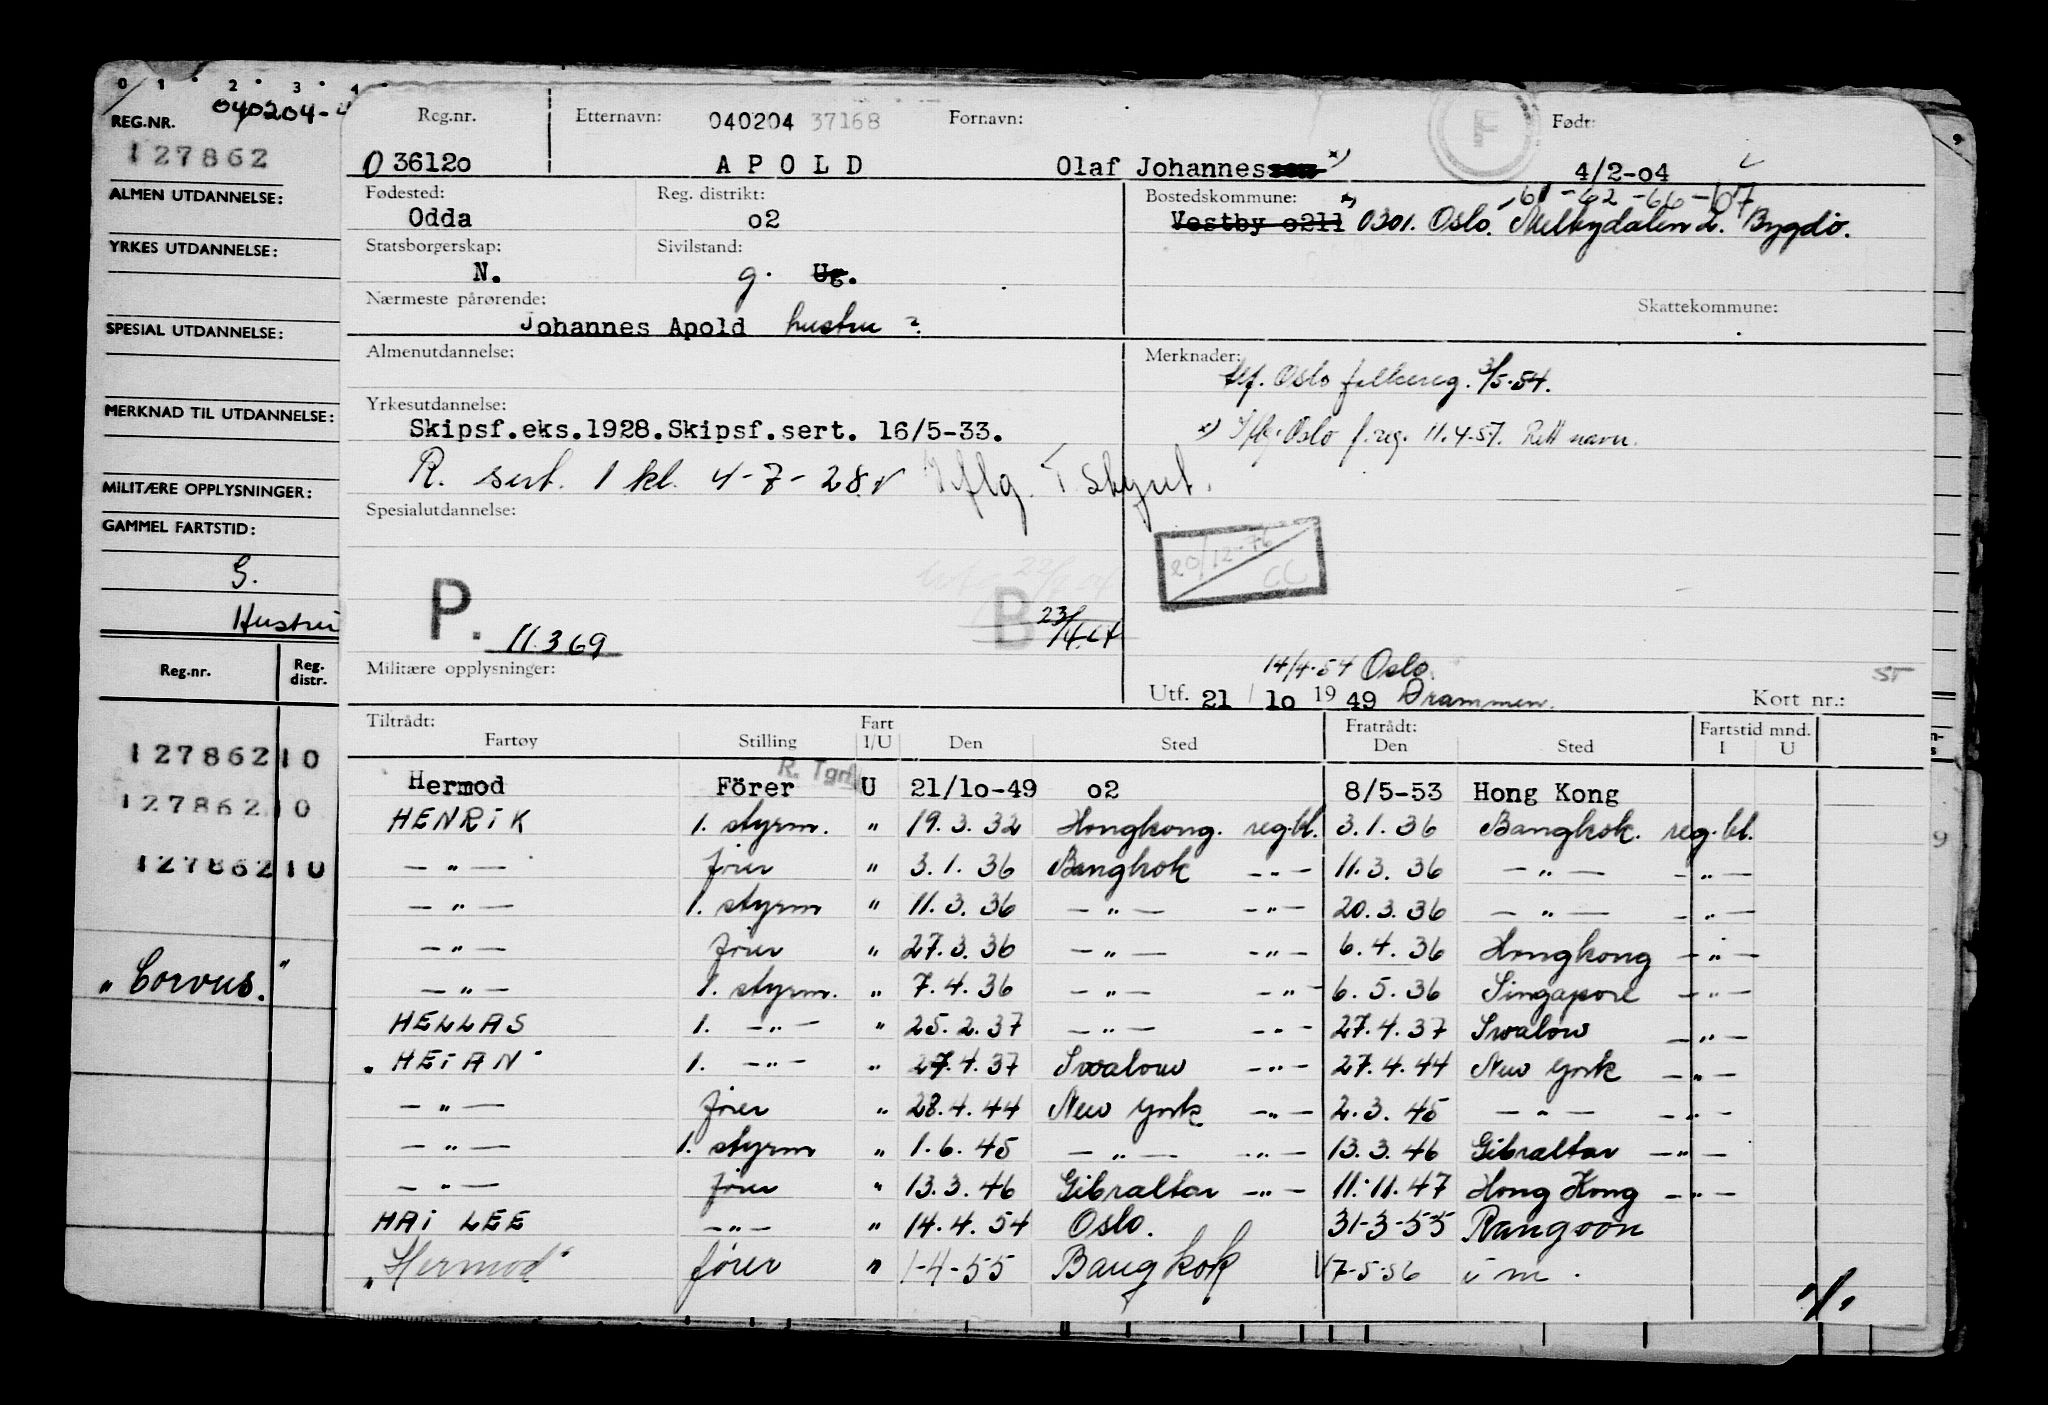 0 1 2 3 4
040204-
REG.NR.
127862
ALMEN UTDANNELSE:
YRKES UTDANNELSE:
SPESIAL UTDANNELSE:
MERKNAD TIL UTDANNELSE:
MILITÆRE OPPLYSNINGER:
GAMMEL FARTSTID:
G.
Hustru
Reg.nr. Reg. distr.
127862 10
127862 10
127862 10
"Corvus."
Reg.nr. Etternavn: 040204 37168 Fornavn: F Født:
0 3612o APOLD Olaf Johannessen x) 4/2-o4
Fødested: Reg. distrikt: Bostedskommune: x) 61-62-66-67
Odda o2 Vestby o211 0301. Oslo. Melkydalen 2. Bygdø.
Statsborgerskap: Sivilstand:
N. g. Ug.
Nærmeste pårørende: Skattekommune:
Johannes Apold hustru ?
Almenutdannelse: Merknader:
Oslo folkereg. 3/5-54.
Yrkesutdannelse:
Skipsf.eks.1928.Skipsf.sert. 16/5-33. x) Iflg. Oslo f.reg. 11.4.57. Rett navn.
R. sert. 1 kl. 4-7-28 Iflg. T. Skynt.
Spesialutdannelse:
20/12-76
CC
P. 11.369 B 23/4.64
Militære opplysninger: 14/4-54 Oslo. ST
Utf. 21 / 1o 19 49 Drammen. Kort nr.:
Tiltrådt: Fart Fratrådt: Fartstid mnd.
Fartøy Stilling I/U Den Sted Den Sted I U
R. Tgrf
Hermod Förer U 21/1o-49 o2 8/5-53 Hong Kong
HENRIK 1. styrm. " 19.3.32 Hongkong. reg.bl. 3.1.36 Bangkok. reg.bl.
— " — fører " 3.1.36 Bangkok — " — 11.3.36 — " — — " —
— " — 1. styrm " 11.3.36 — " — — " — 20.3.36 — " — — " —
— " — fører " 27.3.36 — " — — " — 6.4.36 Hongkong — " —
— " — 1. styrm. " 7.4.36 — " — — " — 6.5.36 Singapore — " —
HELLAS 1. — " — " 25.2.37 — " — — " — 27.4.37 Swalow — " —
"HEIAN" 1. — " — " 27.4.37 Swalow — " — 27.4.44 New York — " —
— " — fører " 28.4.44 New York — " — 2.3.45 — " — — " —
— " — 1. styrm " 1.6.45 — " — — " — 13.3.46 Gibraltar — " —
— " — fører " 13.3.46 Gibraltar — " — 11.11.47 Hong Kong — " —
HAI LEE — " — " 14.4.54 Oslo. 31-3-55 Rangoon
"Hermod" fører " 1-4-55 Bangkok 17-5-56 i m.